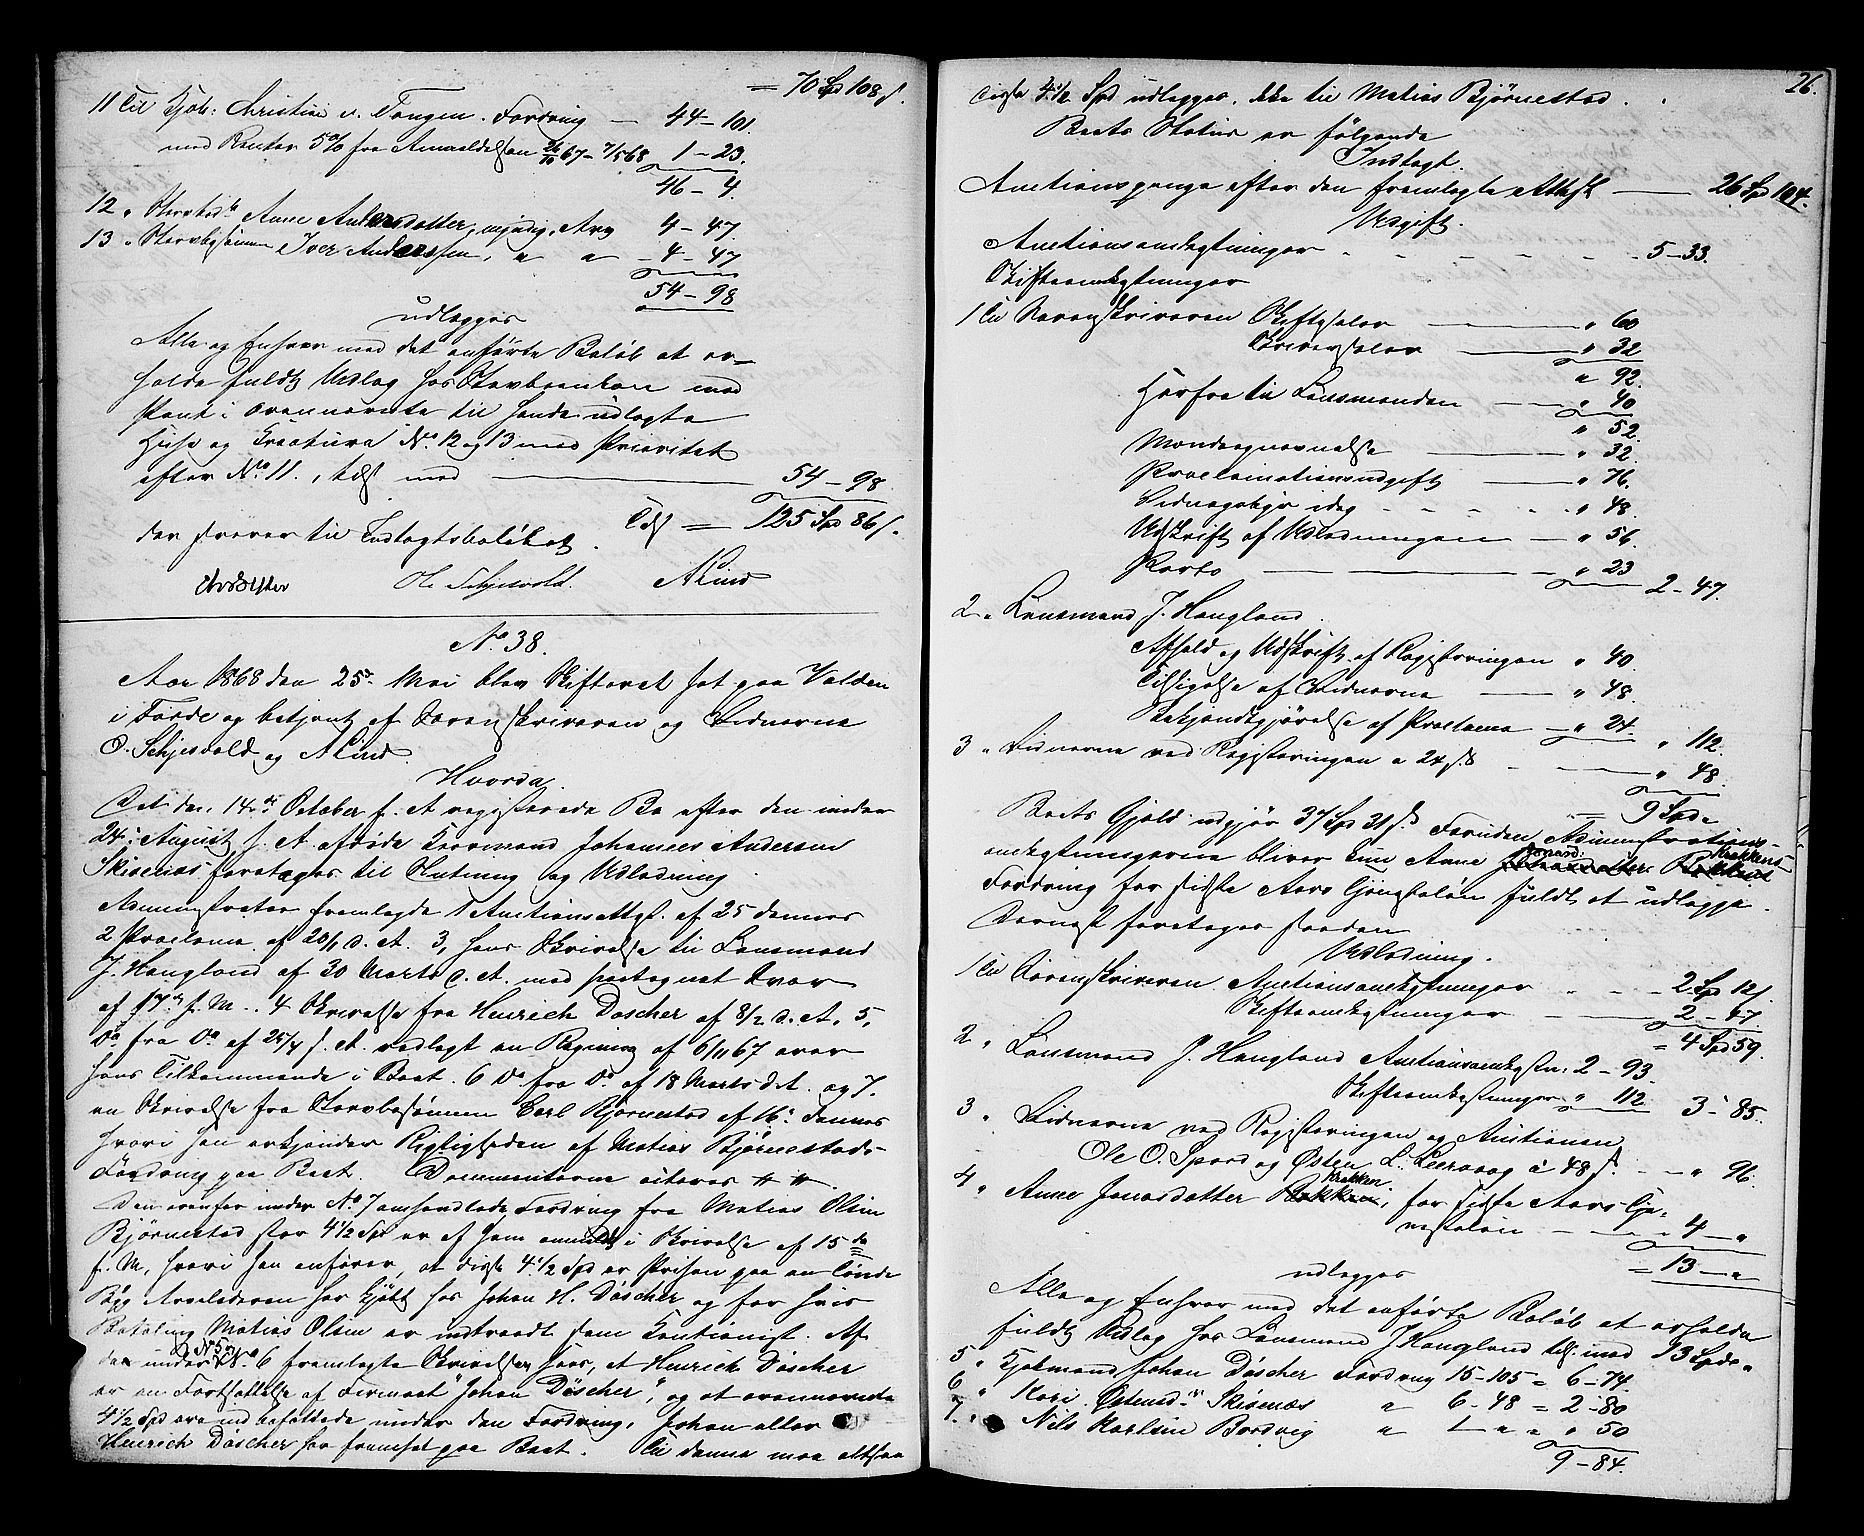 = 70 Spd 108 s.
11 Til Kjøb: Christian v. Tangen. Fordring — 44 – 101.
med Renter 5% fra Anmeldelsen 26/10 67 – 7/5 68 1 – 23.
46 – 4.
12 " Anne Andersdatter, myndig, Arv 4 – 47
13 " Iver Anderssen, " " 4 – 47
54 – 98
udlægges
Alle og Enhver med det anførte Beløb at er-
holde fuldt Udlæg hos med
Pant i ovennævnte til hende udlagte
Huse og Creaturer No. 12 og 13 med Prioritet
efter No. 11., tils. med — 54 – 98
Tils = 125 Spd 86 s.
der svarer til Indtægtsbeløbet.
O. Schjesvold. A Lind
No 38.
Aar 1868 den 25de Mai blev Skifteret sat paa Valden
i Førde og betjent af Sorenskriveren og Vidnerne
O. Schjesvold og A Lind.
Hvorda
Det den 14de October f. A registrerede Bo efter den under
24de August f. A afdøde Johannes Andersen
Skisenæs foretages til Slutning og Udlodning.
Administrator fremlagde 1 Auctionsattest af 25 dennes
2 Proclama af 20/1 d. A. 3, hans Skrivelse til Lensmand
J. Haugland af 30 Marts d. A. med paategnet Svar
af 17de f. M. 4 Skrivelse fra Heinrich Döscher af 8/2 d. A. 5,
Do fra Do af f. A. vedlagt en Regning af 6/11 67 over
hans Tilkommende i Boet. 6 Do fra Do af 18 Marts d. A. og 7.
en Skrivelse fra Carl Bjørnestad af 16de dennes
hvori han erkjender Rigtigheden af Matias Bjørnestads
Fordring paa Boet. Documenterne citeres
Den ovenfor under No 7 omhandlede Fordring fra Matias Olsen
Bjørnestad stor 4 1/2 Spd er af ham i Skrivelse af 15de
f. M., hvori han anfører, at disse 4 1/2 Spd er Prisen paa en Tønde
Byg Arveladeren har kjøbt hos Johan H. Döscher og for hvis
Betaling Matias Olsen er indtraadt som Cautionist. Af
den under No 5 og No 6 fremlagte Skrivelser sees, at Heinrich Döscher
er en Fortsættelse af Firmaet "Johan Döscher", og at ovennævnte
4 1/2 Spd ere indbefattede under den Fordring, Johan eller
Heinrich Döscher har fremsat paa Boet. Til denne maa altsaa
26.
disse 4 1/2 Spd udlægges, ikke til Matias Bjørnestad.
Boets Status er følgende
Indtægt.
Auctionspenge efter den fremlagte Attest — 26 Spd 104.
Udgift.
Auctionsomkostninger 5 – 33.
Skifteomkostninger
1 Til Sorenskriveren Skiftesalær — " 60
Skriversalær — " 32
" 92.
Herfra til Lensmanden — " 40
" 52.
— " 32.
Proclamationsudgift — " 76.
Vidnegebyr idag " 48.
Udskrift af Udlodningen — " 56.
Porto — " 23
2 – 47.
2 " Lensmand J. Haugland.
Afhold og Udskrift af Registreringen " 40.
Tilsigelse af Vidnerne — " 48.
Bekjendtgjørelse af Proclama — " 24.
" 112.
3 " Vidnerne ved Registreringen a 24 s — " 48.
= 9 Spd "
Boets Gjæld udgjør 37 Spd 31 s. Foruden Administrations-
omkostningerne bliver kun Anne Jonasd: Krakkens
Fordring for sidste Aars Tjenesteløn fuldt at udlægge.
Dernæst foretages saadan
Udlodning.
1 Til Sorenskriveren Auctionsomkostninger 2 Spd 12 s.
Skifteomkostninger — 2 – 47
= 4 Spd 59.
2 " Lensmand J. Haugland Auctionsomkostn: 2 – 93.
Skifteomkostninger " 112. 3 – 85.
3 " Vidnerne ved Registreringen og Auctionen
Ole O. Spord og Østen L. Leervaag à 48 s. — " 96.
4 " Anne Jonasdatter Krakken, for sidste Aars Tje-
nesteløn — 4 – "
= 13 – "
udlægges
Alle og Enhver med det anførte Beløb at erholde
fuldt Udlæg hos Lensmand J Haugland tils. med 13 Spd "
5 " Kjøbmand Johan Döscher Fordring 15 – 105 = 6 – 74.
6 " Kari Østensd. Skisenæs " 6 – 48 = 2 – 80
7. " Nils Karlsen Bordvig " 1 – " = " 50
9 – 84.